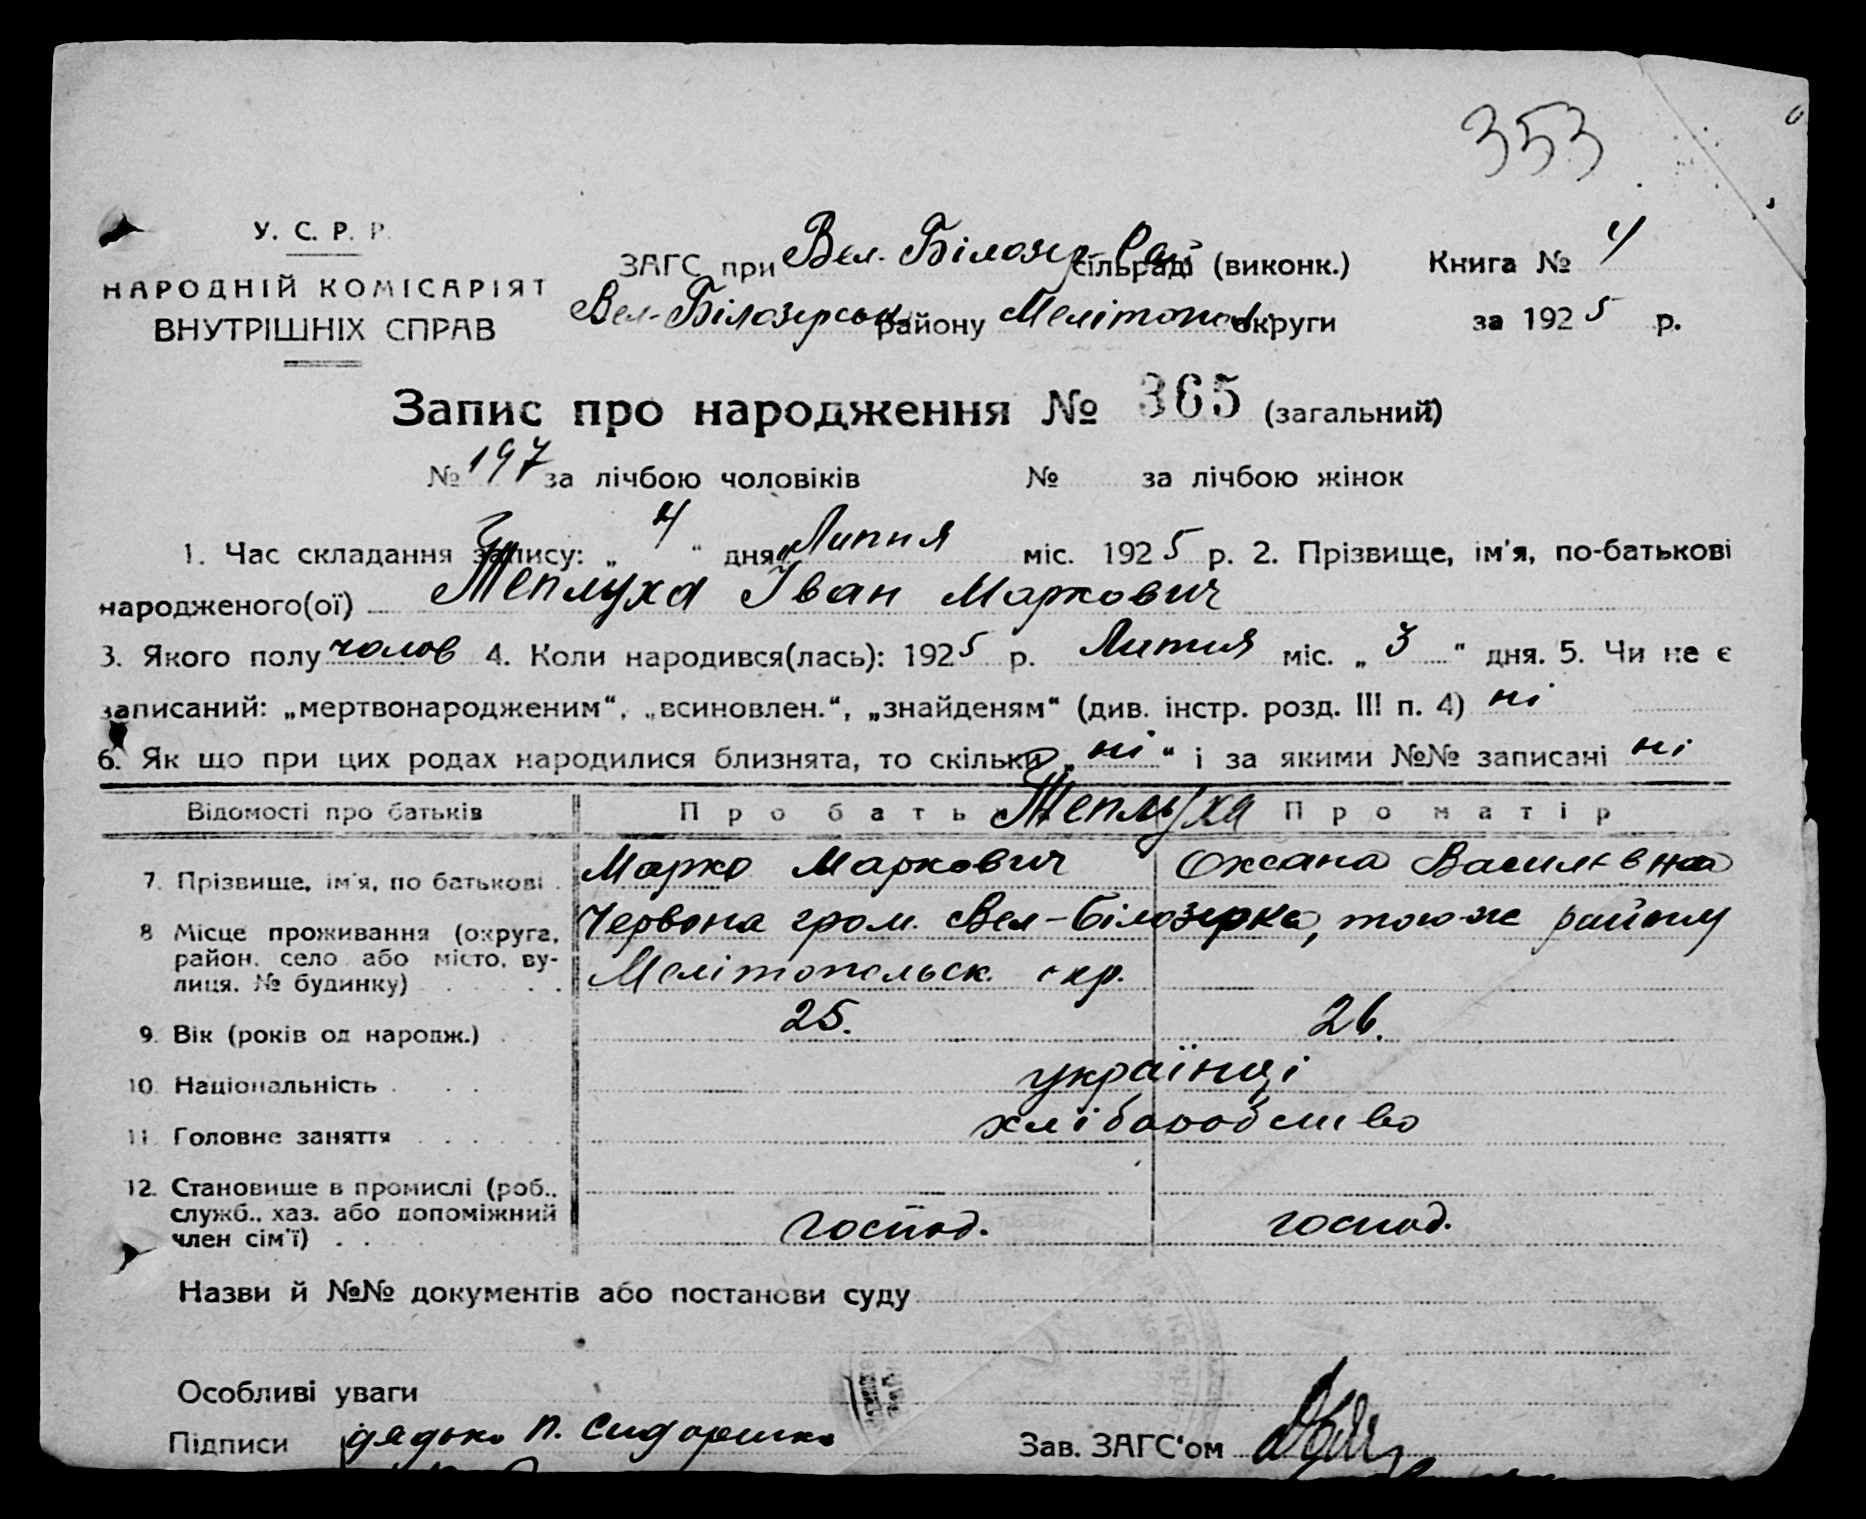 353
У. С. Р. Р.
НАРОДНІЙ КОМІСАРІЯТ
ВНУТРІШНІХ СПРАВ
ЗАГС при Вел. Білозер. сільраді (виконк.) Книга № 4
Вел-Білозерськ району Мелітопол. округи за 1925 р.
Запис про народження № 365 (загальний)
№ 197 за лічбою чоловіків № за лічбою жінок
1. Час складання запису: „ 4 “ дня Липня міс. 1925 р. 2. Прізвище, ім'я, по-батькові
народженого(ої) Теплуха Іван Маркович
3. Якого полу чолов 4. Коли народився(лась): 1925 р. Липня міс. „ 3 “ дня. 5. Чи не є
записаний: „мертвонародженим“, „всиновлен.“, „знайденям“ (див. інстр. розд. III п. 4) ні
6. Як що при цих родах народилися близнята, то скільки „ ні “ і за якими №№ записані ні
Відомості про батьків Про батька Теплуха Про матір
7. Прізвище, ім'я, по батькові Марко Маркович Оксана Василевна
8 Місце проживання (округа, район, село або місто, вулиця, № будинку) Червона гром. Вел-Білозерка, того-ж району
Мелітопольск. окр.
9. Вік (років од народж.) 25. 26.
10. Національність українці
11. Головне заняття хліборобство
12. Становище в промислі (роб.,
служб., хаз. або допоміжний
член сім'ї) господ. господ.
Назви й №№ документів або постанови суду
Особливі уваги
Підписи дядько П. Сидоренко Зав. ЗАГС'ом